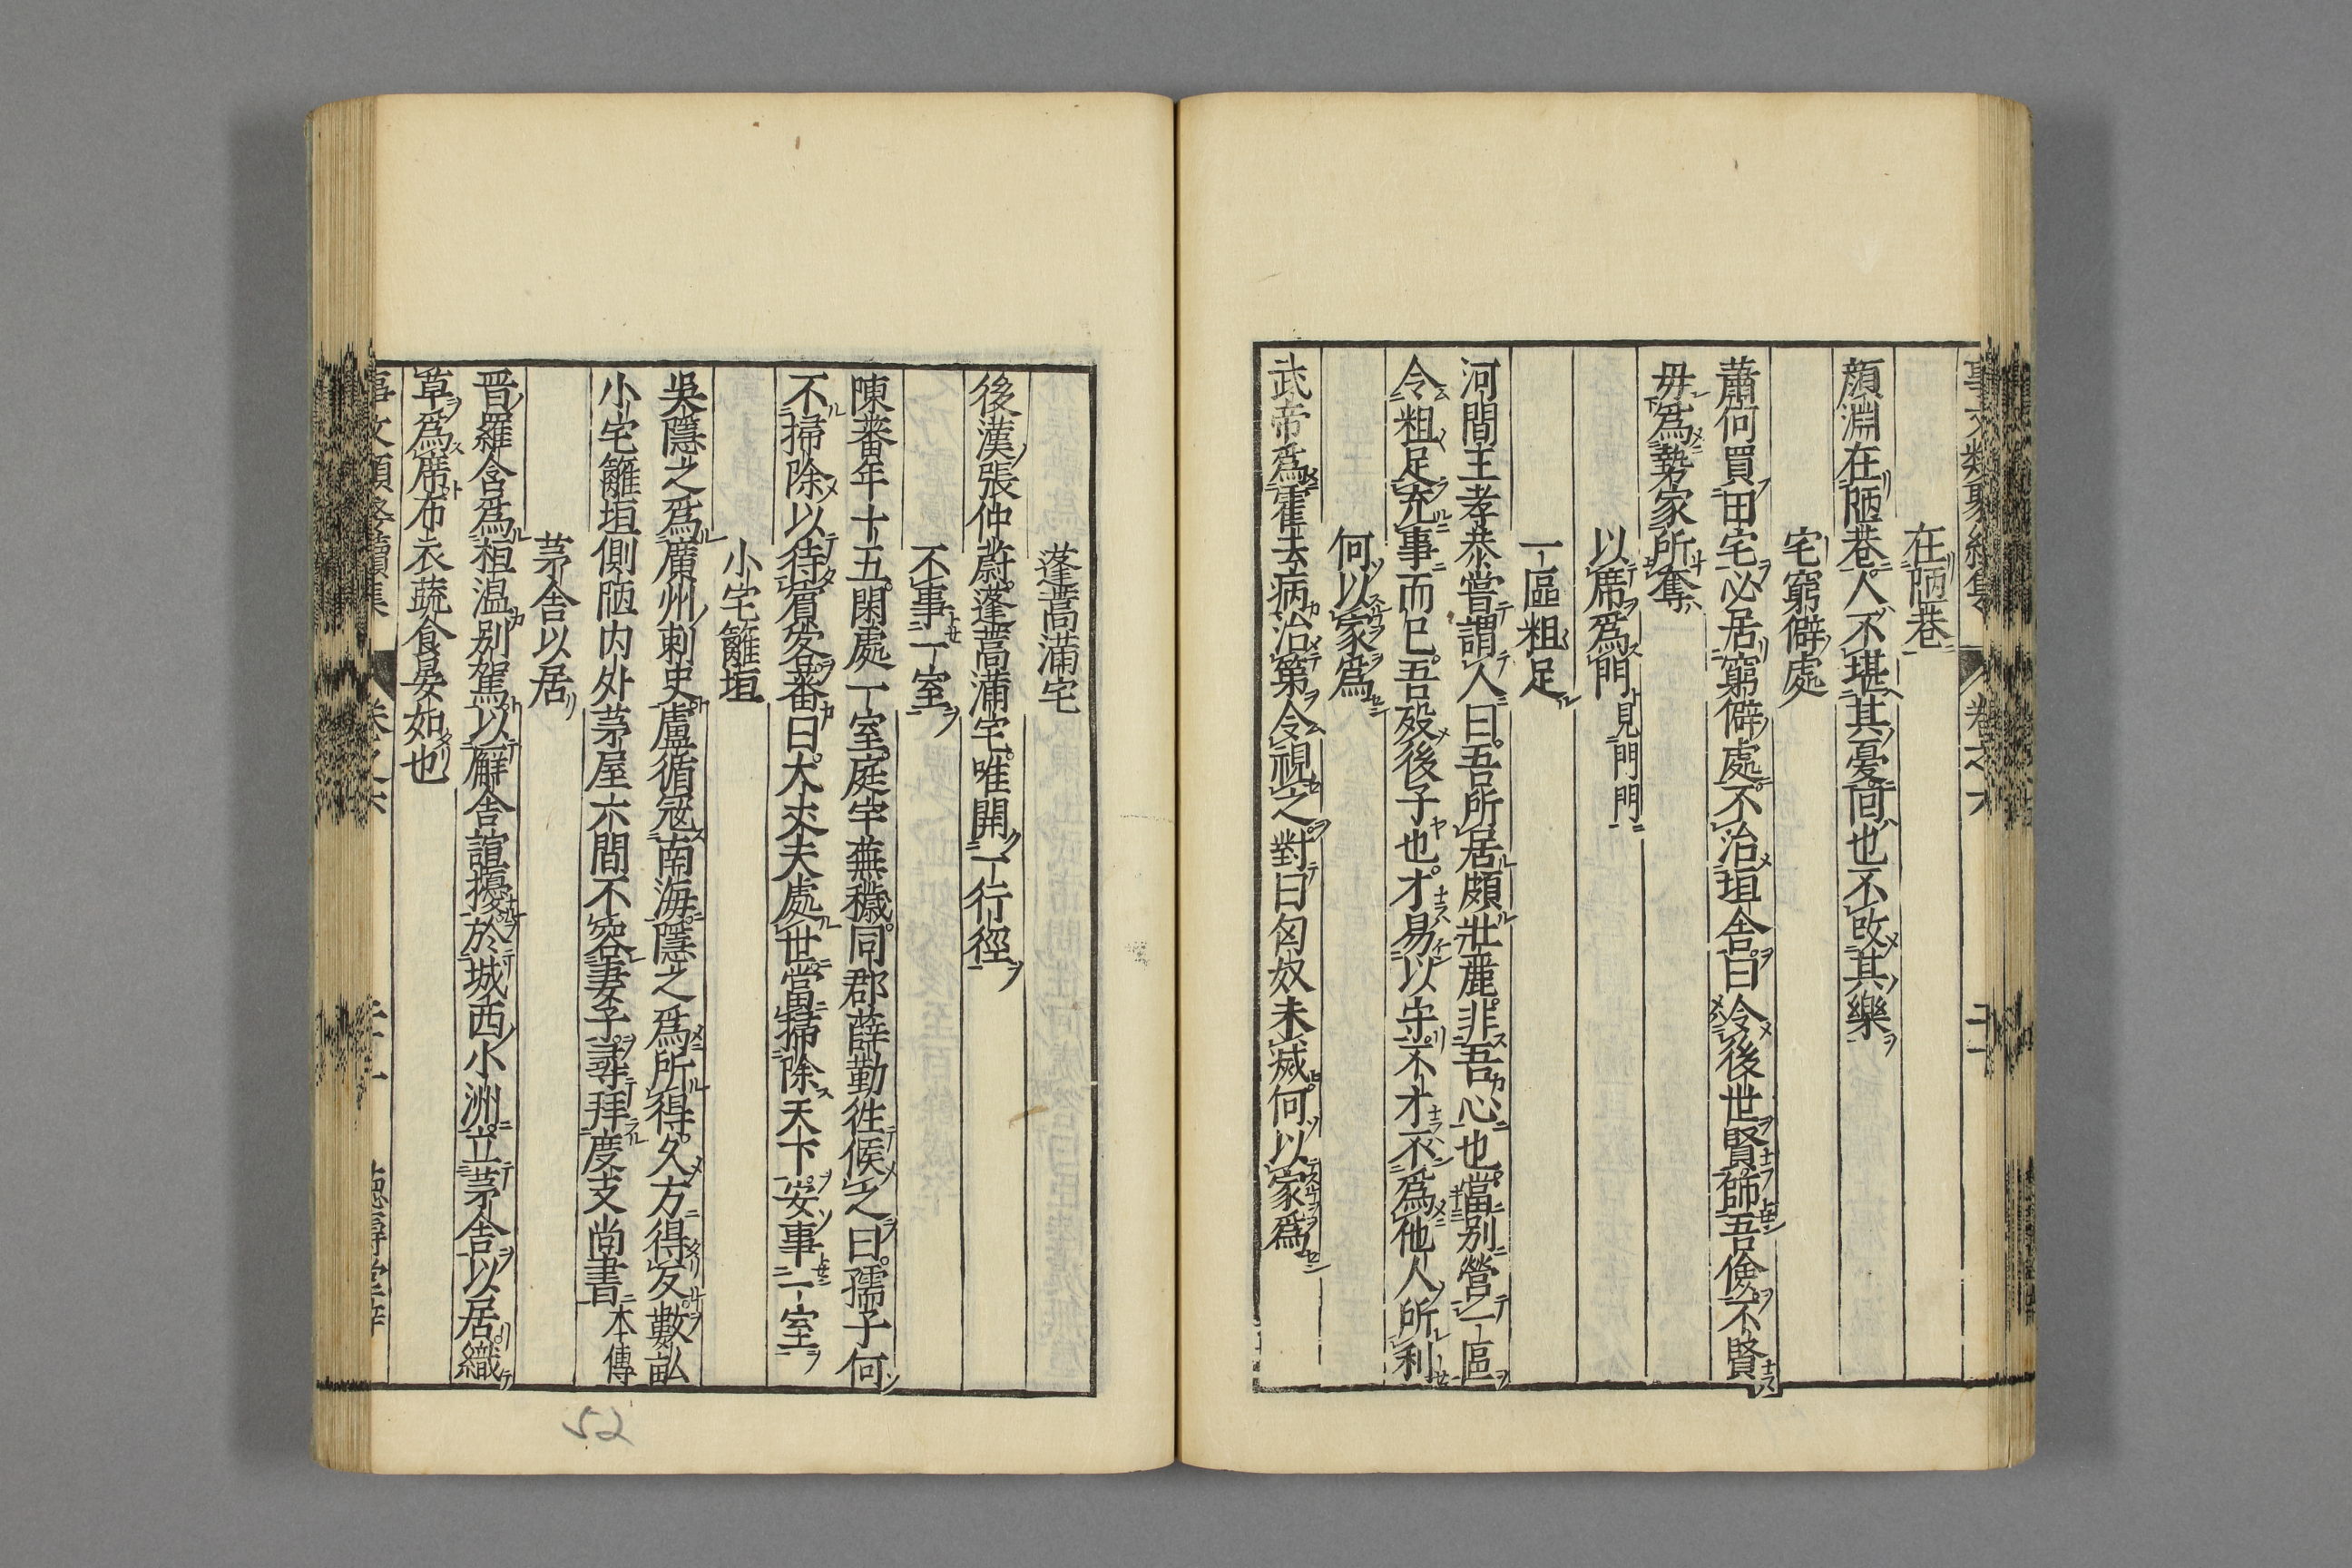 在陋巷
顔淵在陋巷人不堪其憂囘也不改其樂
宅窮僻處
蕭何買田宅必居窮僻處不治垣舍曰令後世賢師吾儉不賢
毋爲勢家所奪
以席爲門見門門
一區粗足
河間王孝恭嘗謂人曰吾所居頗壯麗非吾心也當別營一區
令粗足充事而已吾歿後子也才易以守不才不爲他人所利
何以家爲
武帝爲霍去病治第令視之對曰匈奴未滅何以家爲
蓬蒿滿宅
後漢張仲蔚蓬蒿滿宅唯開一行徑
不事一室
陳蕃年十五閑處一室庭宇蕪穢同郡薛勤徃候之曰孺子何
不掃除以待賔客蕃曰大丈夫處世當掃除天下安事一室
小宅籬垣
吳隱之爲廣州刺史盧循宼南海隱之爲所得久方得反數畝
小宅籬垣側陋内外茅屋六間不容妻子尋拜度支尚書本傳
茅舍以居
晋羅含爲桓温别駕以廨舍諠擾於城西小洲立茅舍以居織
草爲席布衣蔬食晏如也
卷之六
52